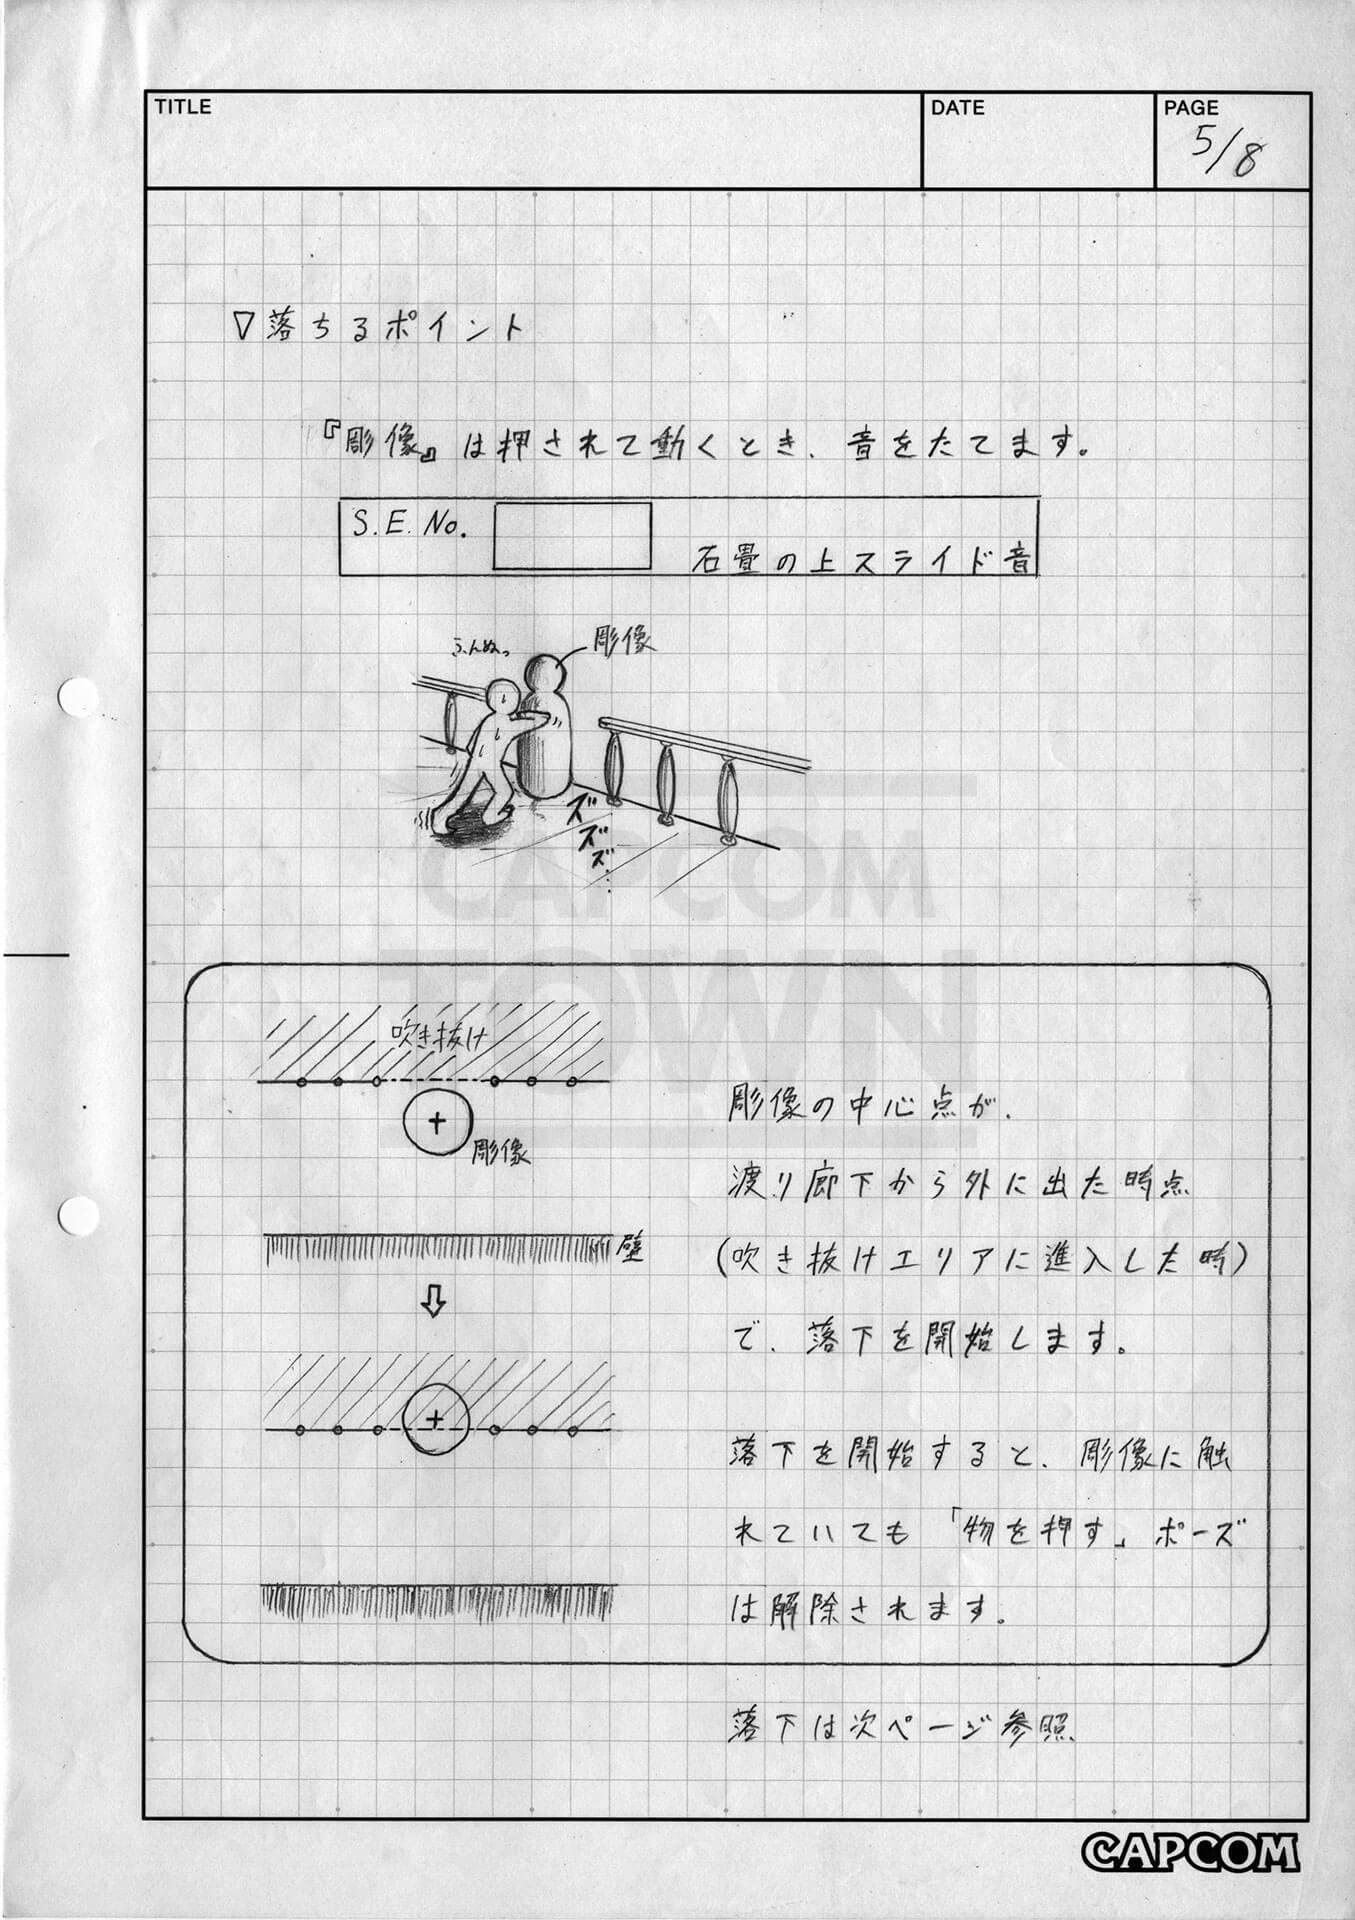 TITLE
DATE
PAGE
5/8
▽落ちるポイント
『彫像』は押されて動くとき、音をたてます。
S.E.No.
石畳の上スライド音
ふんぬっ
彫像
ズズズ…
CAPCOM
TOWN
吹き抜け
彫像
壁
彫像の中心点が、
渡り廊下から外に出た時点
(吹き抜けエリアに進入した時)
で、落下を開始します。
落下を開始すると、彫像に触
れていても「物を押す」ポーズ
は解除されます。
落下は次ページ参照
CAPCOM